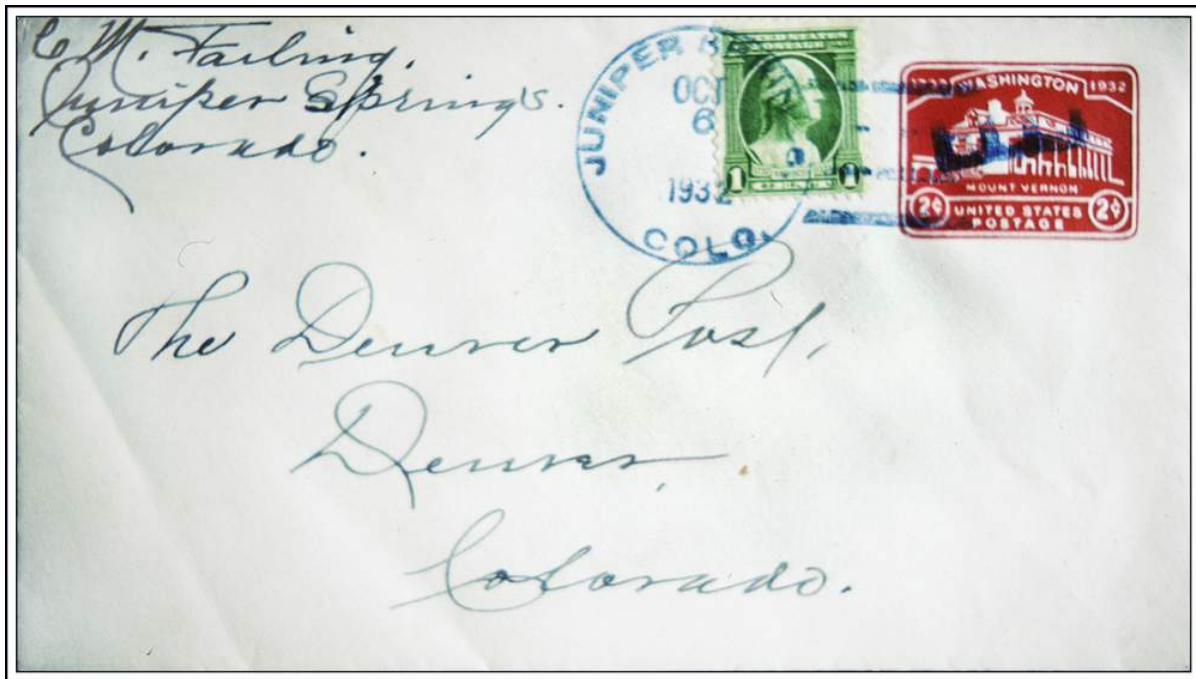 C. M. Failing.
Juniper Springs.
Colorado.
JUNIPER
OCT
6
1932
COLO.
UNITED STATES
POSTAGE
1 1
1732 WASHINGTON 1932
MOUNT VERNON
2¢ UNITED STATES 2¢
POSTAGE
The Denver Post,
Denver,
Colorado.